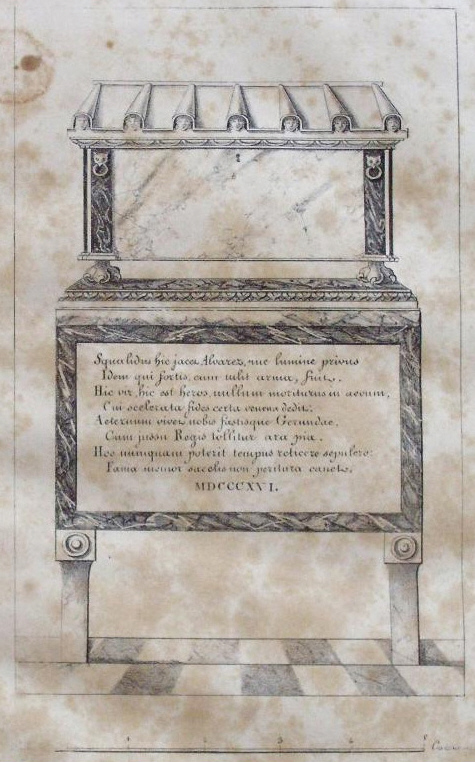 Squalidus hic jacet Alvarez, nuc lumine privus
Idem qui fortis, cum tulit arma, fuit.
Hic vir hic est heros nullum moriturus in aevum,
Cui scelerata fides certa venena dedit;
Aeternum vivet nobis fastisque Gerundae,
Cum jussu Regis tollitur ara pia.
Hoc nunquam poterit tempus reticere sepulcro:
Fama memor saeclis non peritura canet.
MDCCCXVI.